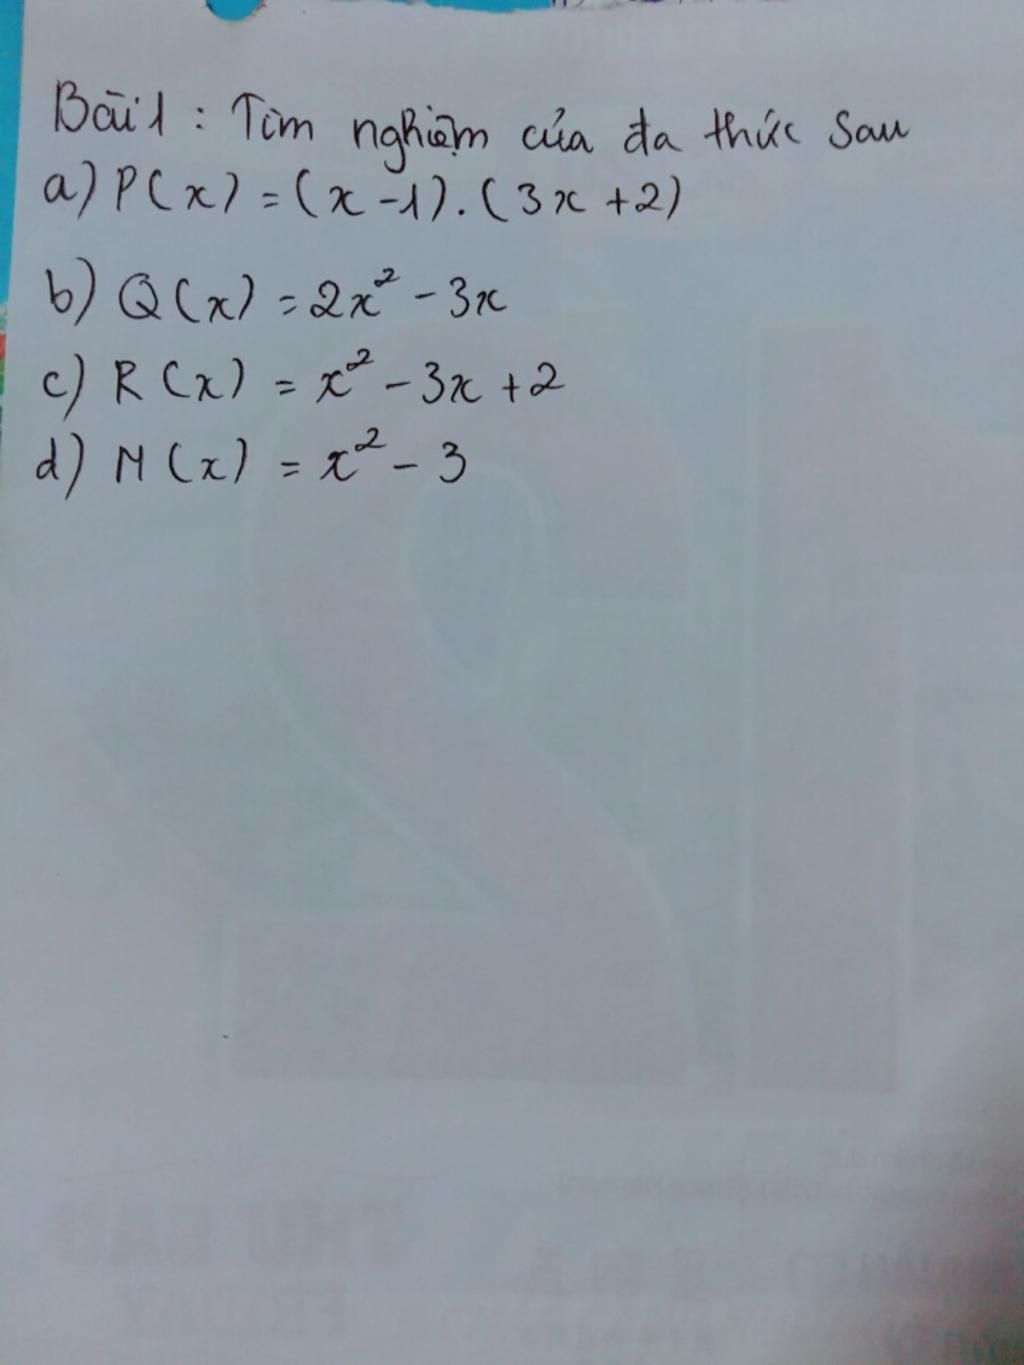 Bài 1 : Tìm nghiệm của đa thức sau
a) P(x) = (x - 1) . (3x + 2)
b) Q(x) = 2x² - 3x
c) R(x) = x² - 3x + 2
d) M(x) = x² - 3
THỨ SÁU
FRIDAY